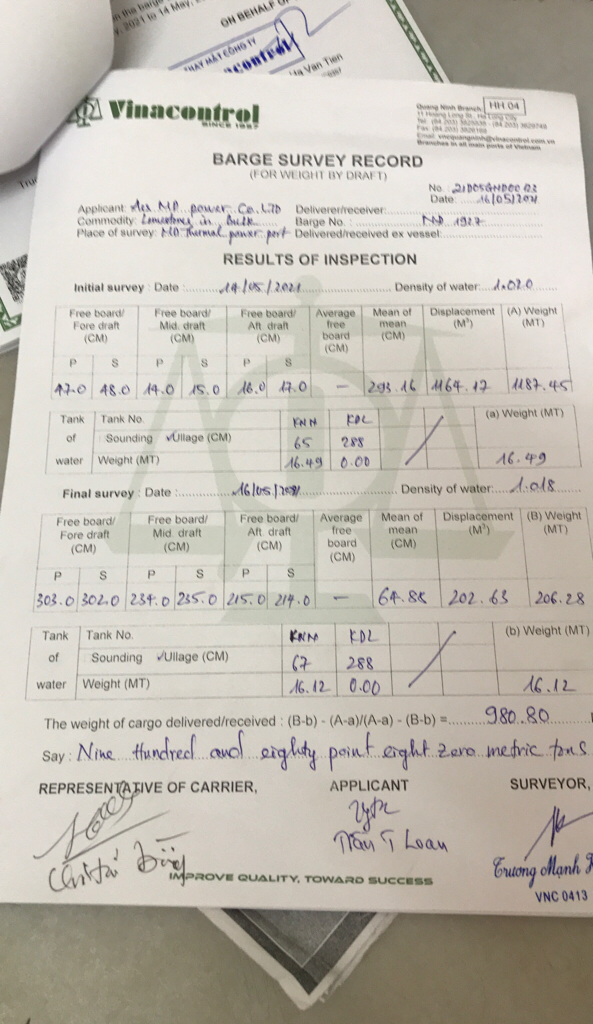 ON BEHALF OF
, 2021 to 14 May,
THAY MẶT CÔNG TY
Van Tien
Vinacontrol
SINCE 1957
Quang Ninh Branch
HH.04
11 Hoang Long St., Ha Long City
Branches in all main ports of Vietnam
BARGE SURVEY RECORD
(FOR WEIGHT BY DRAFT)
No.
Date: 16/05/2021
Applicant: Aes MD power Co. LTD Deliverer/receiver:
Commodity: Limestone in Bulk Barge No.: ND 1927
Place of survey: MD Thermal power port Delivered/received ex vessel:
RESULTS OF INSPECTION
Initial survey : Date : 14/05/2021 Density of water: 1.020
Free board/ Fore draft (CM) Free board/ Mid. draft (CM) Free board/ Aft. draft (CM) Average free board (CM) Mean of mean (CM) Displacement (M³) (A) Weight (MT)
P S P S P S
47.0 48.0 14.0 15.0 16.0 17.0 — 293.16 1164.17 1187.45
Tank of water Tank No. KNN KDL (a) Weight (MT)
Sounding ✓Ullage (CM) 65 288
Weight (MT) 16.49 0.00 16.49
Final survey : Date : 16/05/2021 Density of water: 1.018
Free board/ Fore draft (CM) Free board/ Mid. draft (CM) Free board/ Aft. draft (CM) Average free board (CM) Mean of mean (CM) Displacement (M³) (B) Weight (MT)
P S P S P S
303.0 302.0 234.0 235.0 215.0 214.0 — 64.88 202.63 206.28
Tank of water Tank No. KNN KDL (b) Weight (MT)
Sounding ✓Ullage (CM) 67 288
Weight (MT) 16.12 0.00 16.12
The weight of cargo delivered/received : (B-b) - (A-a)/(A-a) - (B-b) = 980.80
Say : Nine Hundred and eighty point eight zero metric tons
REPRESENTATIVE OF CARRIER, APPLICANT SURVEYOR,
Trần T Loan
Trương Mạnh
IMPROVE QUALITY, TOWARD SUCCESS
VNC 0413